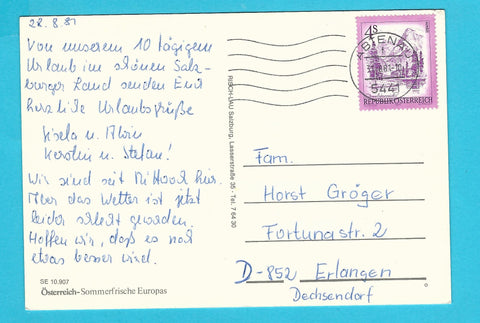 28.8.81
Von unserem 10 tägigem
Urlaub im schönen Salz-
burger Land senden Euch
herzliche Urlaubsgrüße
Gisela u. Alwin
Kerstin u. Stefan!
Wir sind seit Mittwoch hier.
Aber das Wetter ist jetzt
leider schlecht geworden.
Hoffen wir, daß es noch
etwas besser wird.
SE 10.907
Österreich-Sommerfrische Europas
RISCH-LAU Salzburg, Lasserstraße 35 - Tel. 7 64 30
4S
REPUBLIK ÖSTERREICH
ABTENAU
5441
Fam.
Horst Gröger
Fortunastr. 2
D-852 Erlangen
Dechsendorf